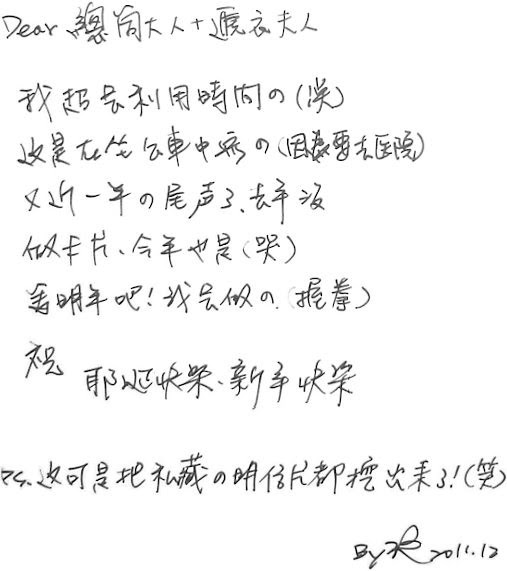 Dear 總筒大人+遞衣夫人
我超会利用時间の(淚)
这是在坐公車中寫の(因為要去医院)
又近一年の尾声了、去年没
做卡片、今年也是(哭)
看明年吧!我会做の(握拳)
祝 耶诞快楽、新年快楽
PS.这可是把私藏の明信片都挖出来了!(笑)
By 2011.12